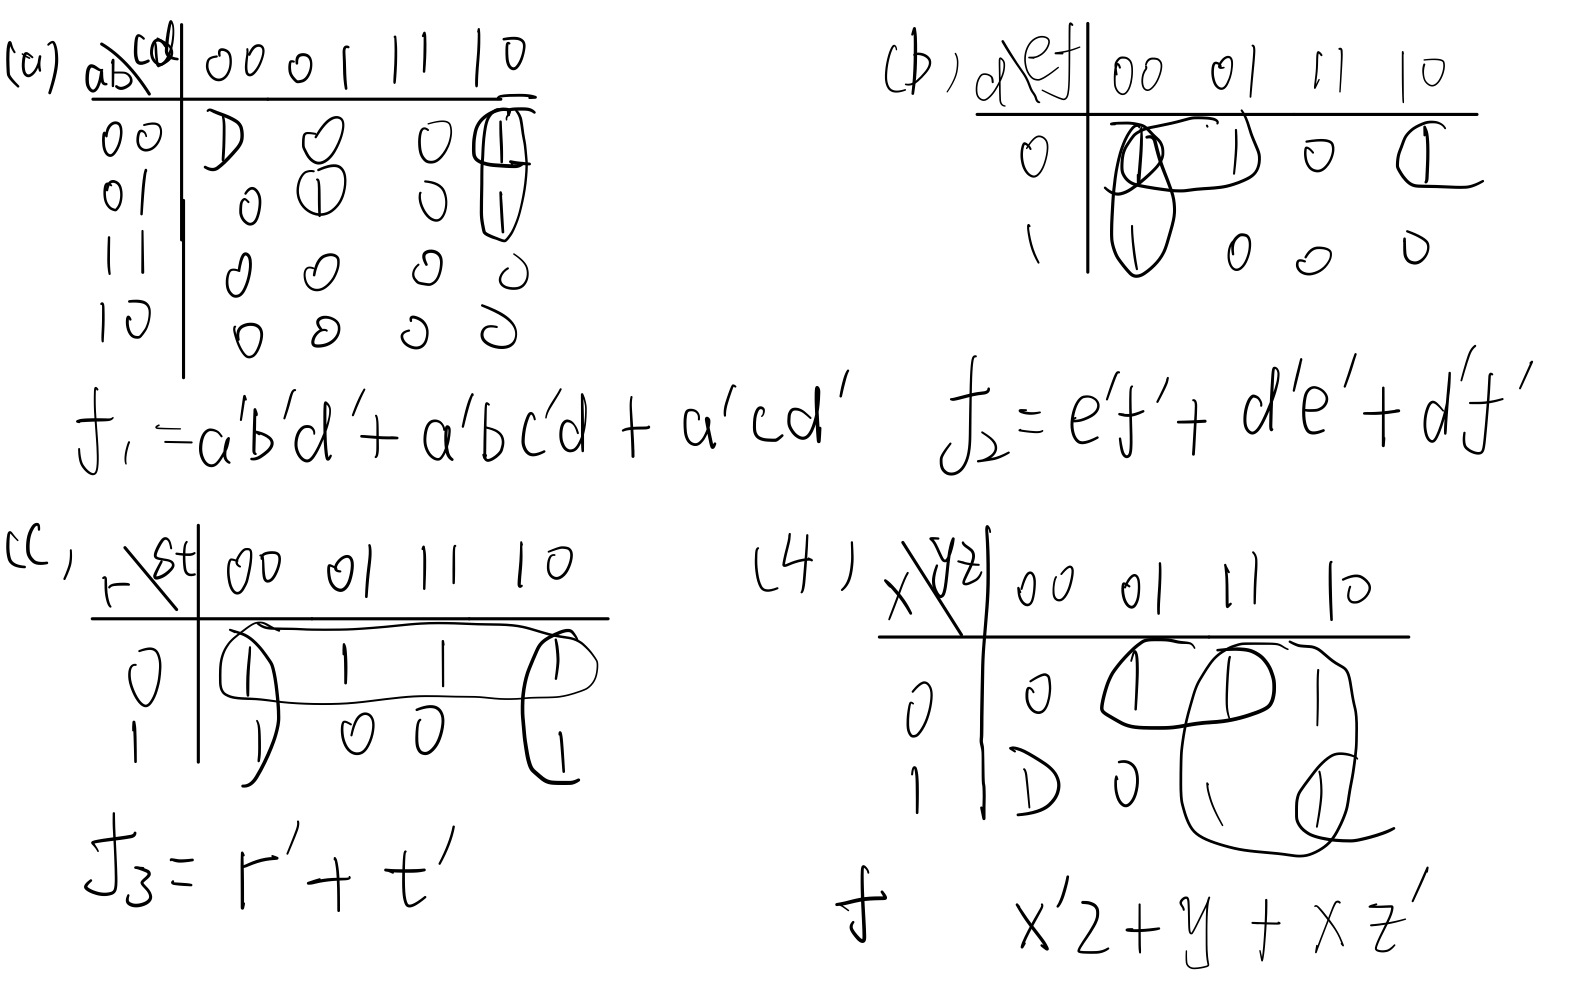 (a) ab\cd 00 01 11 10
00 1 0 0 1
01 0 1 0 1
11 0 0 0 0
10 0 0 0 0
f₁ = a'b'd' + a'bc'd + a'cd'
(b) d\ef 00 01 11 10
0 1 1 0 1
1 1 0 0 0
f₂ = e'f' + d'e' + d'f'
(c) r\st 00 01 11 10
0 1 1 1 1
1 1 0 0 1
f₃ = r' + t'
(4) x\yz 00 01 11 10
0 0 1 1 1
1 1 0 1 1
f x'z + y + xz'